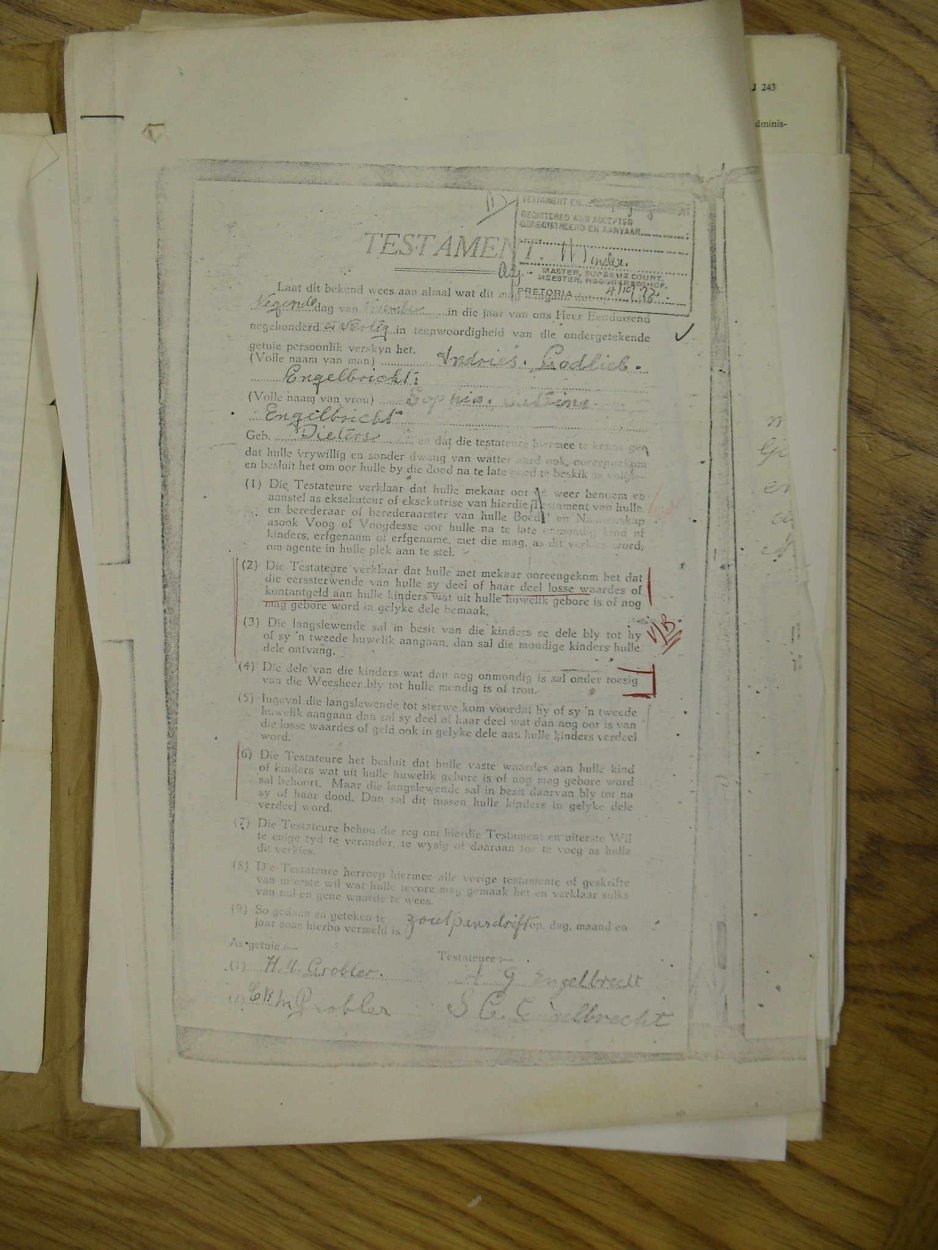 J 243
dminis-
TESTAMENT EN
REGISTERED AND ACCEPTED
GEREGISTREER EN AANVAAR
MASTER, SUPREME COURT.
MEESTER, HOOGGEREGSHOF.
PRETORIA
TESTAMENT
Laat dit bekend wees aan almal wat dit mag aangaan dat
Negende dag van in die jaar van ons Heer Eenduisend
negehonderd en veertig in teenwoordigheid van die ondergetekende
getuie persoonlik verskyn het.
(Volle naam van man) Andries. Godlieb.
Engelbricht.
(Volle naam van vrou) Sophia.
Engelbricht
Geb. Dieters en dat die testateure hiermee te kenne gee
dat hulle vrywillig en sonder dwang van watter aard ook, ooreengekom
en besluit het om oor hulle by die dood na te late goed te beskik as volg:—
(1) Die Testateure verklaar dat hulle mekaar oor en weer benoem en
aanstel as eksekuteur of eksekutrise van hierdie Testament van hulle
en beredderaar of beredderaarster van hulle Boedel en Nalatenskap
asook Voog of Voogdesse oor hulle na te late onmondig kind of
kinders, erfgenaam of erfgename, met die mag, as dit verkies word,
om agente in hulle plek aan te stel.
(2) Die Testateure verklaar dat hulle met mekaar ooreengekom het dat
die eerssterwende van hulle sy deel of haar deel losse waardes of
kontantgeld aan hulle kinders wat uit hulle huwelik gebore is of nog
mag gebore word in gelyke dele bemaak.
(3) Die langslewende sal in besit van die kinders se dele bly tot hy
of sy 'n tweede huwelik aangaan, dan sal die mondige kinders hulle
dele ontvang.
N/B
(4) Die dele van die kinders wat dan nog onmondig is sal onder toesig
van die Weesheer bly tot hulle mondig is of trou.
(5) Ingeval die langslewende tot sterwe kom voordat hy of sy 'n tweede
huwelik aangaan dan sal sy deel of haar deel wat dan nog oor is van
die losse waardes of geld ook in gelyke dele aan hulle kinders verdeel
word.
(6) Die Testateure het besluit dat hulle vaste waardes aan hulle kind
of kinders wat uit hulle huwelik gebore is of nog mag gebore word
sal behoort. Maar die langslewende sal in besit daarvan bly tot na
sy of haar dood. Dan sal dit tussen hulle kinders in gelyke dele
verdeel word.
(7) Die Testateure behou die reg om hierdie Testament en uiterste Wil
te enige tyd te verander, te wysig of daaraan toe te voeg as hulle
dit verkies.
(8) Die Testateure herroep hiermee alle vorige testamente of geskrifte
van uiterste wil wat hulle tevore mag gemaak het en verklaar sulks
van nul en gene waarde te wees.
(9) So gedaan en geteken te Zoutpansdrift op dag, maand en
jaar soos hierbo vermeld is.
As getuie :— Testateure :—
(1) H. M. Grobler. A G Engelbrecht
(2) Grobler S. C. Engelbrecht